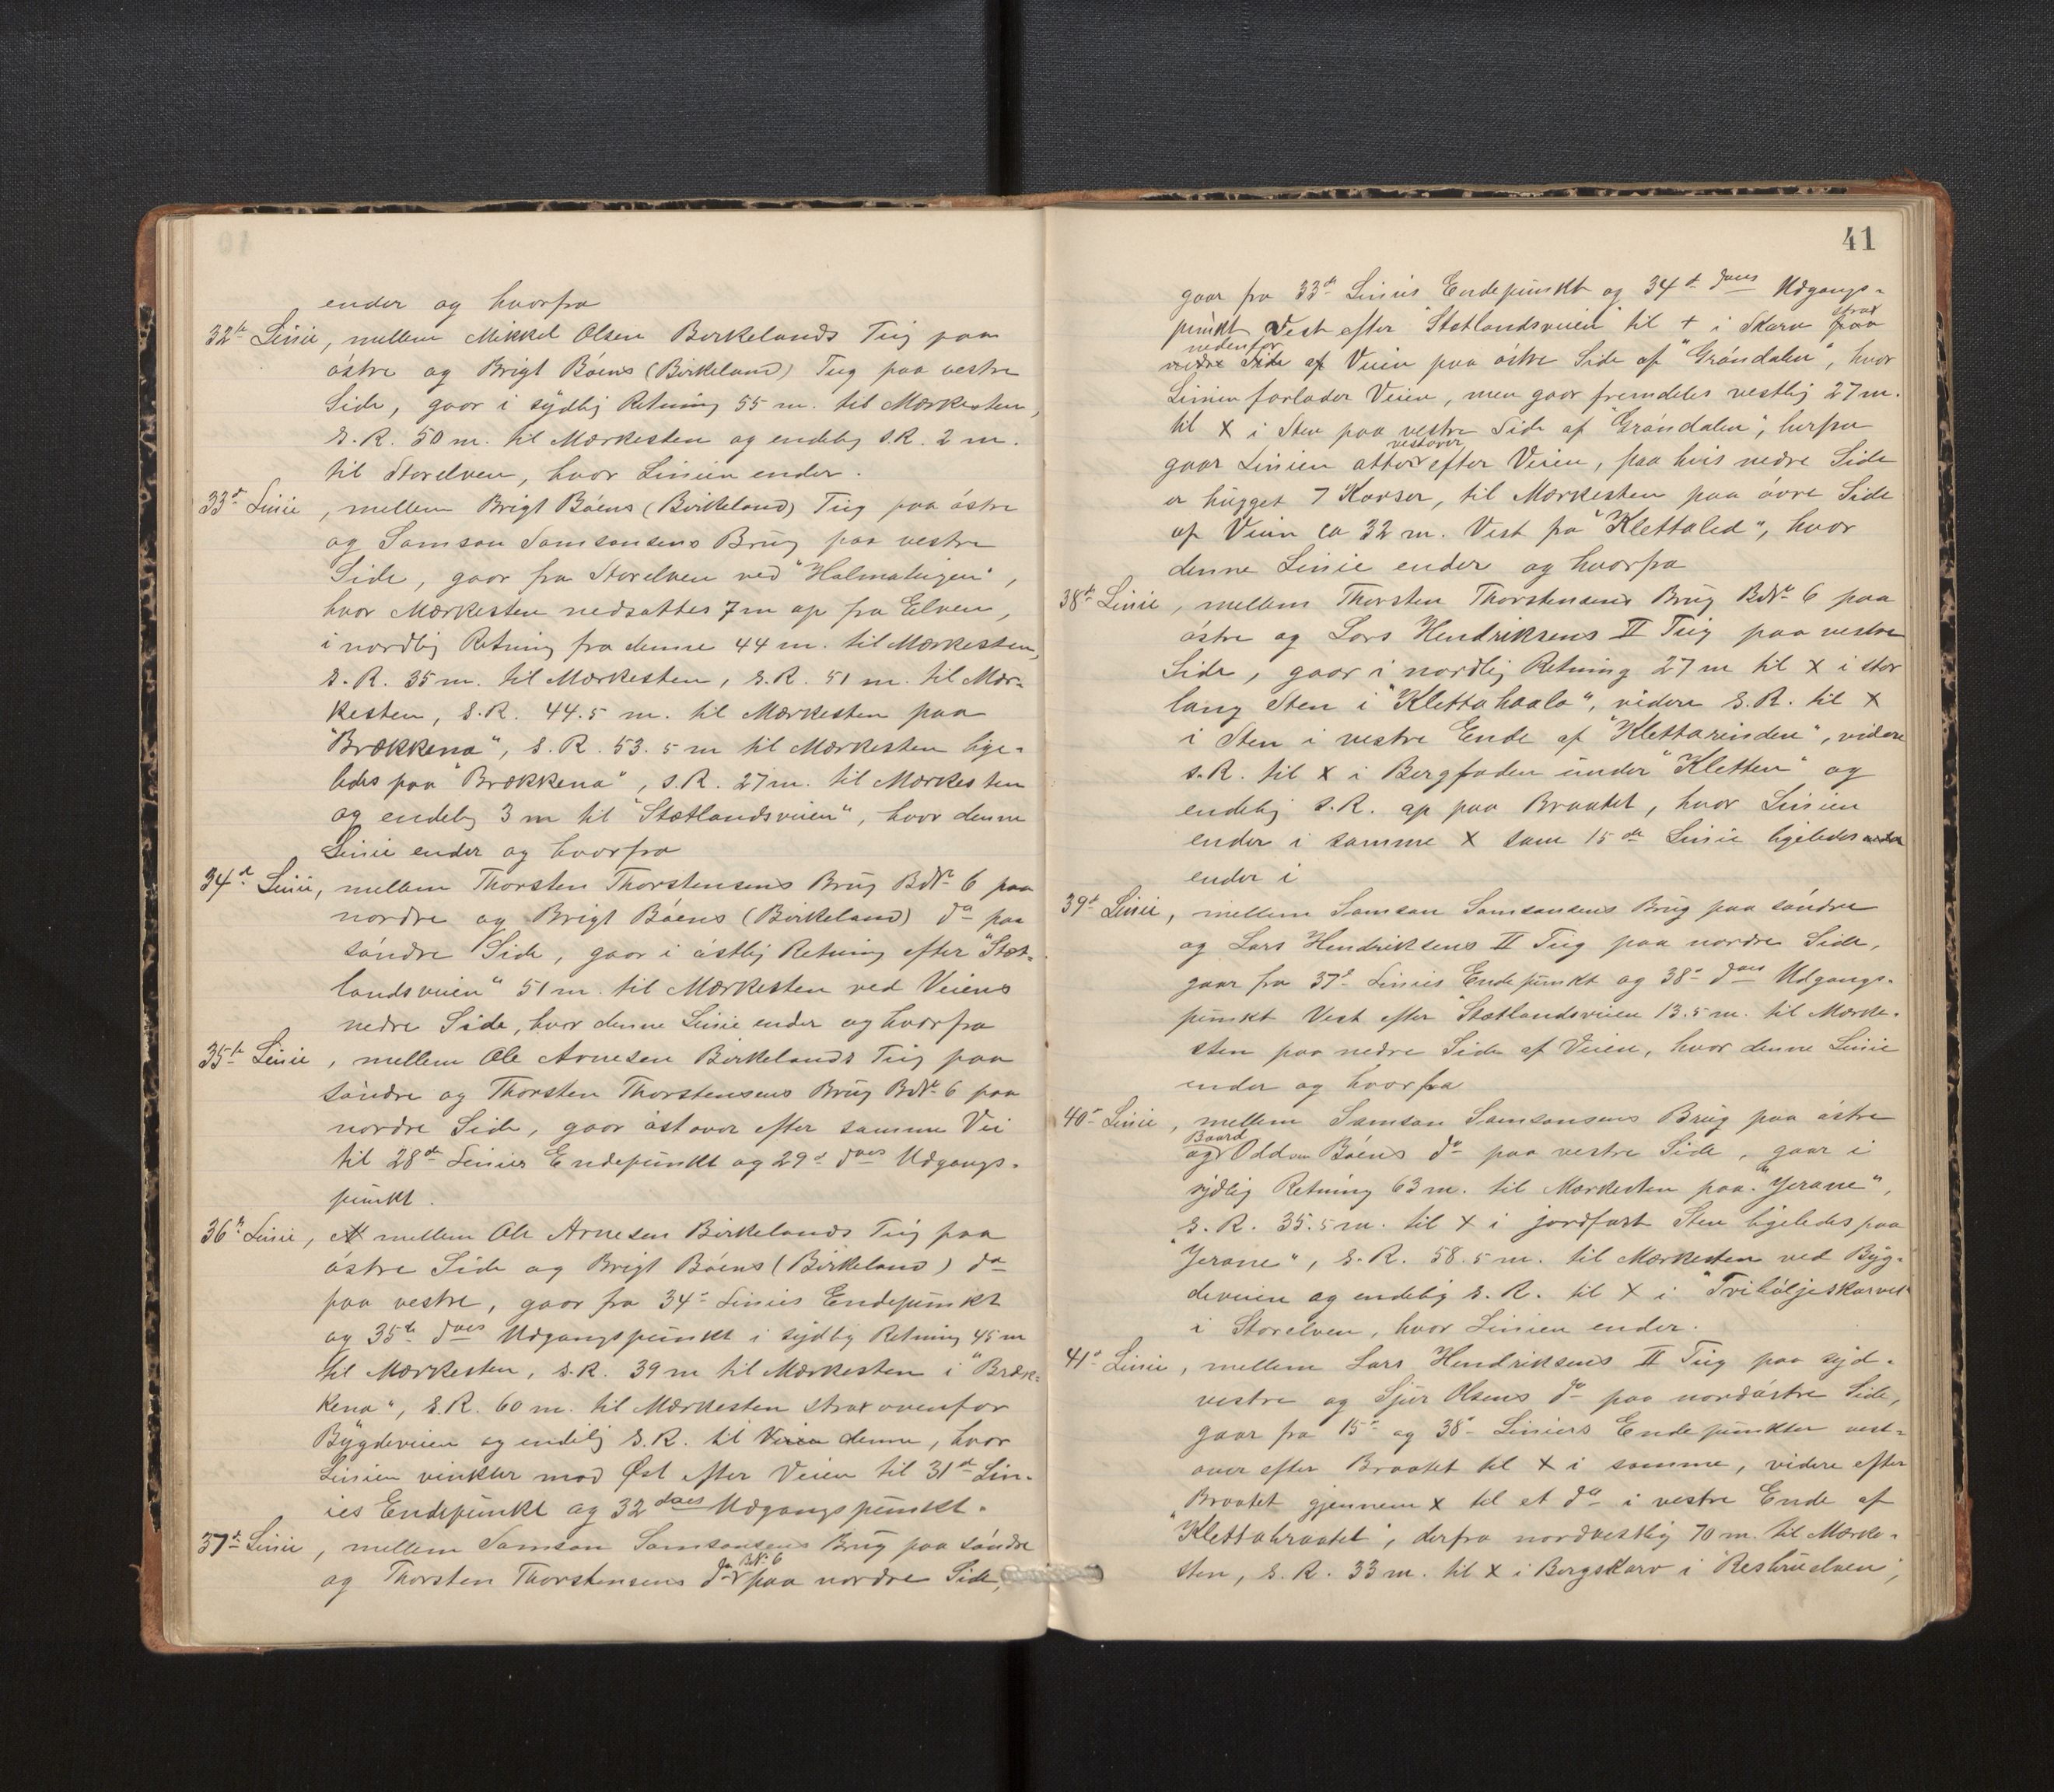 ender og hvorfra
32te Linie, mellem Mikkel Olsen Birkelands Teig paa
østre og Brigt Bøens (Birkeland) Teig paa vestre
Side, gaar i sydlig Retning 55 m. til Mærkesten,
s. R. 50 m. til Mærkesten og endelig s.R. 2 m.
til Storelven, hvor Linien ender.
33te Linie, mellem Brigt Bøens (Birkeland) Teig paa østre
og Samson Samsonsens Brug paa vestre
Side, gaar fra Storelven ved "Halmateigen",
hvor Mærkesten nedsattes 7 m op fra Elven,
i nordlig Retning fra denne 44 m. til Mærkesten,
s. R. 35 m. til Mærkesten, s.R. 51 m. til Mær-
kesten, s.R. 44.5 m. til Mærkesten paa
"Brækkena", s. R. 53.5 m til Mærkesten lige-
ledes paa "Brækkena", s.R. 27 m. til Mærkesten
og endelig 3 m til "Stætlandsveien", hvor denne
Linie ender og hvorfra
34de Linie, mellem Thorsten Thorstensens Brug B.Nr. 6 paa
nordre og Brigt Bøens (Birkeland) do paa
søndre Side, gaar i østlig Retning efter "Stæt-
landsveien" 51 m. til Mærkesten ved Veiens
nedre Side, hvor denne Linie ender og hvorfra
35te Linie, mellem Ole Arnesen Birkelands Teig paa
søndre og Thorsten Thorstensens Brug B.Nr. 6 paa
nordre Side, gaar østover efter samme Vei
til 28de Linies Endepunkt og 29de do's Udgangs-
punkt.
36te Linie, mellem Ole Arnesen Birkelands Teig paa
østre Side og Brigt Bøens (Birkeland) do
paa vestre, gaar fra 34de Linies Endepunkt
og 35te do's Udgangspunkt i sydlig Retning 45 m
til Mærkesten, s.R. 39 m til Mærkesten i "Bræk-
kena", s.R. 60 m. til Mærkesten strax ovenfor
Bygdeveien og endelig s.R. til Veien denne, hvor
Linien vinkler mod Øst efter Veien til 31te Lin-
ies Endepunkt og 32 do's Udgangspunkt.
37te Linie, mellem Samson Samsonsens Brug paa søndre
og Thorsten Thorstensens do B.Nr. 6 paa nordre Side,
41
gaar fra 33de Linies Endepunkt og 34de do's Udgangs-
punkt Vest efter "Stætlandsveien" til + i Skarv paa strax
nedre Side af nedenfor Veien paa østre Side af "Grøndalen", hvor
Linien forlader Veien, men gaar fremdeles vestlig 27 m.
til x i Sten paa vestre Side af "Grøndalen", herfra
gaar Linien atter vestover efter Veien, paa hvis nedre Side
er hugget 7 Korser, til Mærkesten paa øvre Side
af Veien ca 32 m. Vest fra "Klettaled", hvor
denne Linie ender og hvorfra
38te Linie, mellem Thorsten Thorstensens Brug B.Nr. 6 paa
østre og Lars Hendriksens II Teig paa vestre
Side, gaar i nordlig Retning 27 m til x i stor
lang Sten i "Klettahaala", videre s.R. til x
i Sten i vestre Ende af "Klettarinden", videre
s.R. til x i Bergfoden under "Kletten" og
endelig s.R. op paa Braatet, hvor Linien
ender i samme x som 15de Linie ligeledes
ender i
39te Linie, mellem Samson Samsonsens Brug paa søndre
og Lars Hendriksens II Teig paa nordre Side,
gaar fra 37te Linies Endepunkt og 38te do's Udgangs-
punkt Vest efter "Stætlandsveien 13.5 m. til Mærke-
sten paa nedre Side af Veien, hvor denne Linie
ender og hvorfra
40de Linie, mellem Samson Samsonsens Brug paa østre
og Baard Oddsen Bøens do paa vestre Side, gaar i
sydlig Retning 63 m. til Mærkesten paa "Jerane",
s. R. 35.5 m. til x i jordfast Sten ligeledes paa
"Jerane", s.R. 58.5 m. til Mærkesten ved Byg-
deveien og endelig s.R. til x i "Tvihøljeskarvet"
i Storelven, hvor Linien ender.
41de Linie, mellem Lars Hendriksens II Teig paa syd-
vestre og Sjur Olsens do paa nordøstre Side,
gaar fra 15de og 38te Liniers Endepunkter vest-
over efter Braatet til x i samme, videre efter
Braatet gjennem x til et do i vestre Ende af
"Klettabraatet", derfra nordvestlig 70 m. til Mærke-
sten, s.R. 33 m. til x i Bergskarv i "Resbruelven",